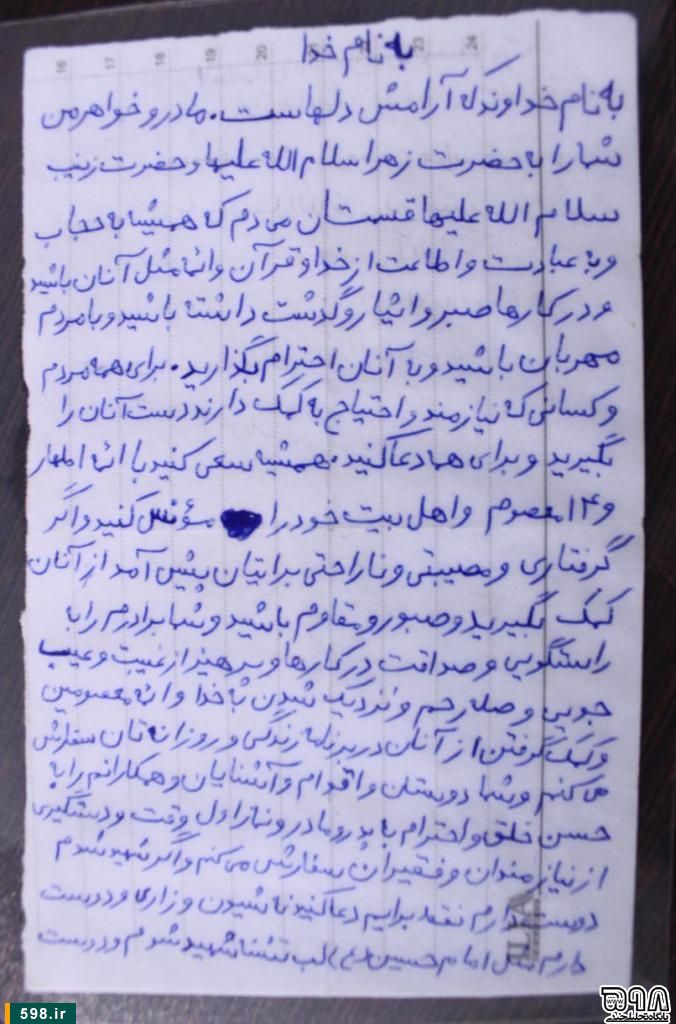 16 17 18 19 20 23 24
به نام خدا
به نام خداوندکه آرامش دلهاست. مادر و خواهر من
شما را به حضرت زهرا سلام الله علیها و حضرت زینب
سلام الله علیها قسمتان می دم که همیشه با حجاب
و به عبادت و اطاعت از خدا و قرآن و ائمه مثل آنان باشید
و در کارها صبر و ایثار و گذشت داشته باشید و با مردم
مهربان باشید و به آنان احترام بگذارید. برای همه مردم
و کسانی که نیازمند و احتیاج به کمک دارند دست آنان را
بگیرید و برای همه دعا کنید. همیشه سعی کنید با ائمه اطهار
و ۱۴ معصوم و اهل بیت خود را مؤنس کنید و اگر
گرفتاری و مصیبتی و ناراحتی برایتان پیش آمد از آنان
کمک بگیرید و صبور و مقاوم باشید و شما برادرم را با
راستگویی و صداقت در کارها و پرهیز از غیبت و عیب
جویی و صله رحم و نزدیک شدن به خدا و ائمه معصومین
و کمک گرفتن از آنان در برنامه زندگی و روزانه تان سفارش
می کنم و شما دوستان و اقوام و آشنایان و همکارانم را به
حسن خلق و احترام با پدر و مادر و نماز اول وقت و دستگیری
از نیازمندان و فقیران سفارش می کنم و اگر شهید شدم
دوست دارم فقط برایم دعا کنید نه شیون و زاری و دوست
دارم مثل امام حسین (ع) لب تشنه شهید شوم و دوست
598.ir